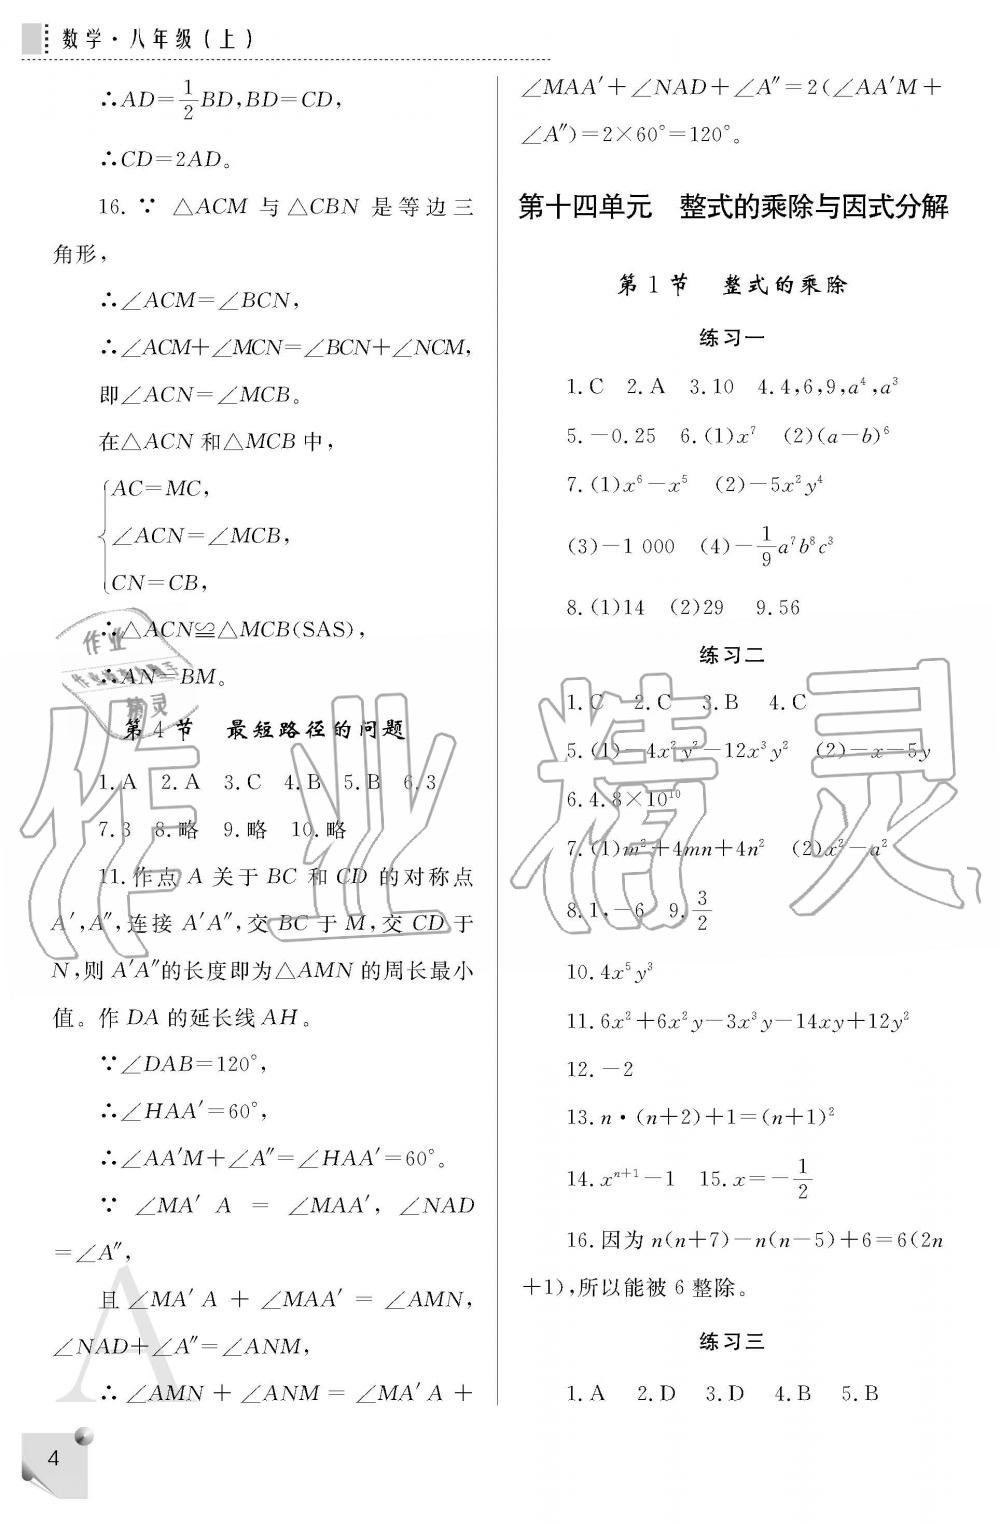 数学·八年级(上)
∴AD=1/2BD,BD=CD,
∴CD=2AD。
16.∵ △ACM 与△CBN 是等边三
角形,
∴∠ACM=∠BCN,
∴∠ACM+∠MCN=∠BCN+∠NCM,
即∠ACN=∠MCB。
在△ACN 和△MCB 中,
AC=MC,
∠ACN=∠MCB,
CN=CB,
∴△ACN≌△MCB(SAS),
∴AN=BM。
第 4 节 最短路径的问题
1.A 2.A 3.C 4.B 5.B 6.3
7.3 8.略 9.略 10.略
11.作点 A 关于 BC 和 CD 的对称点
A′,A″,连接 A′A″,交 BC 于 M,交 CD 于
N,则 A′A″的长度即为△AMN 的周长最小
值。作 DA 的延长线 AH。
∵∠DAB=120°,
∴∠HAA′=60°,
∴∠AA′M+∠A″=∠HAA′=60°。
∵ ∠MA′A = ∠MAA′, ∠NAD
=∠A″,
且∠MA′A + ∠MAA′ = ∠AMN,
∠NAD+∠A″=∠ANM,
∴ ∠AMN + ∠ANM = ∠MA′A +
4
∠MAA′+∠NAD+∠A″=2(∠AA′M+
∠A″)=2×60°=120°。
第十四单元 整式的乘除与因式分解
第 1 节 整式的乘除
练习一
1.C 2.A 3.10 4.4,6,9,a⁴,a³
5.-0.25 6.(1)x⁷ (2)(a-b)⁶
7.(1)x⁶-x⁵ (2)-5x²y⁴
(3)-1 000 (4)-1/9a⁷b⁸c³
8.(1)14 (2)29 9.56
练习二
1.C 2.C 3.B 4.C
5.(1)-4x²y²-12x³y² (2)-x-5y
6.4.8×10¹⁰
7.(1)m²+4mn+4n² (2)x²-a²
8.1,-6 9.3/2
10.4x⁵y³
11.6x²+6x²y-3x³y-14xy+12y²
12.-2
13.n·(n+2)+1=(n+1)²
14.xⁿ⁺¹-1 15.x=-1/2
16.因为 n(n+7)-n(n-5)+6=6(2n
+1),所以能被 6 整除。
练习三
1.A 2.D 3.D 4.B 5.B
作业精灵